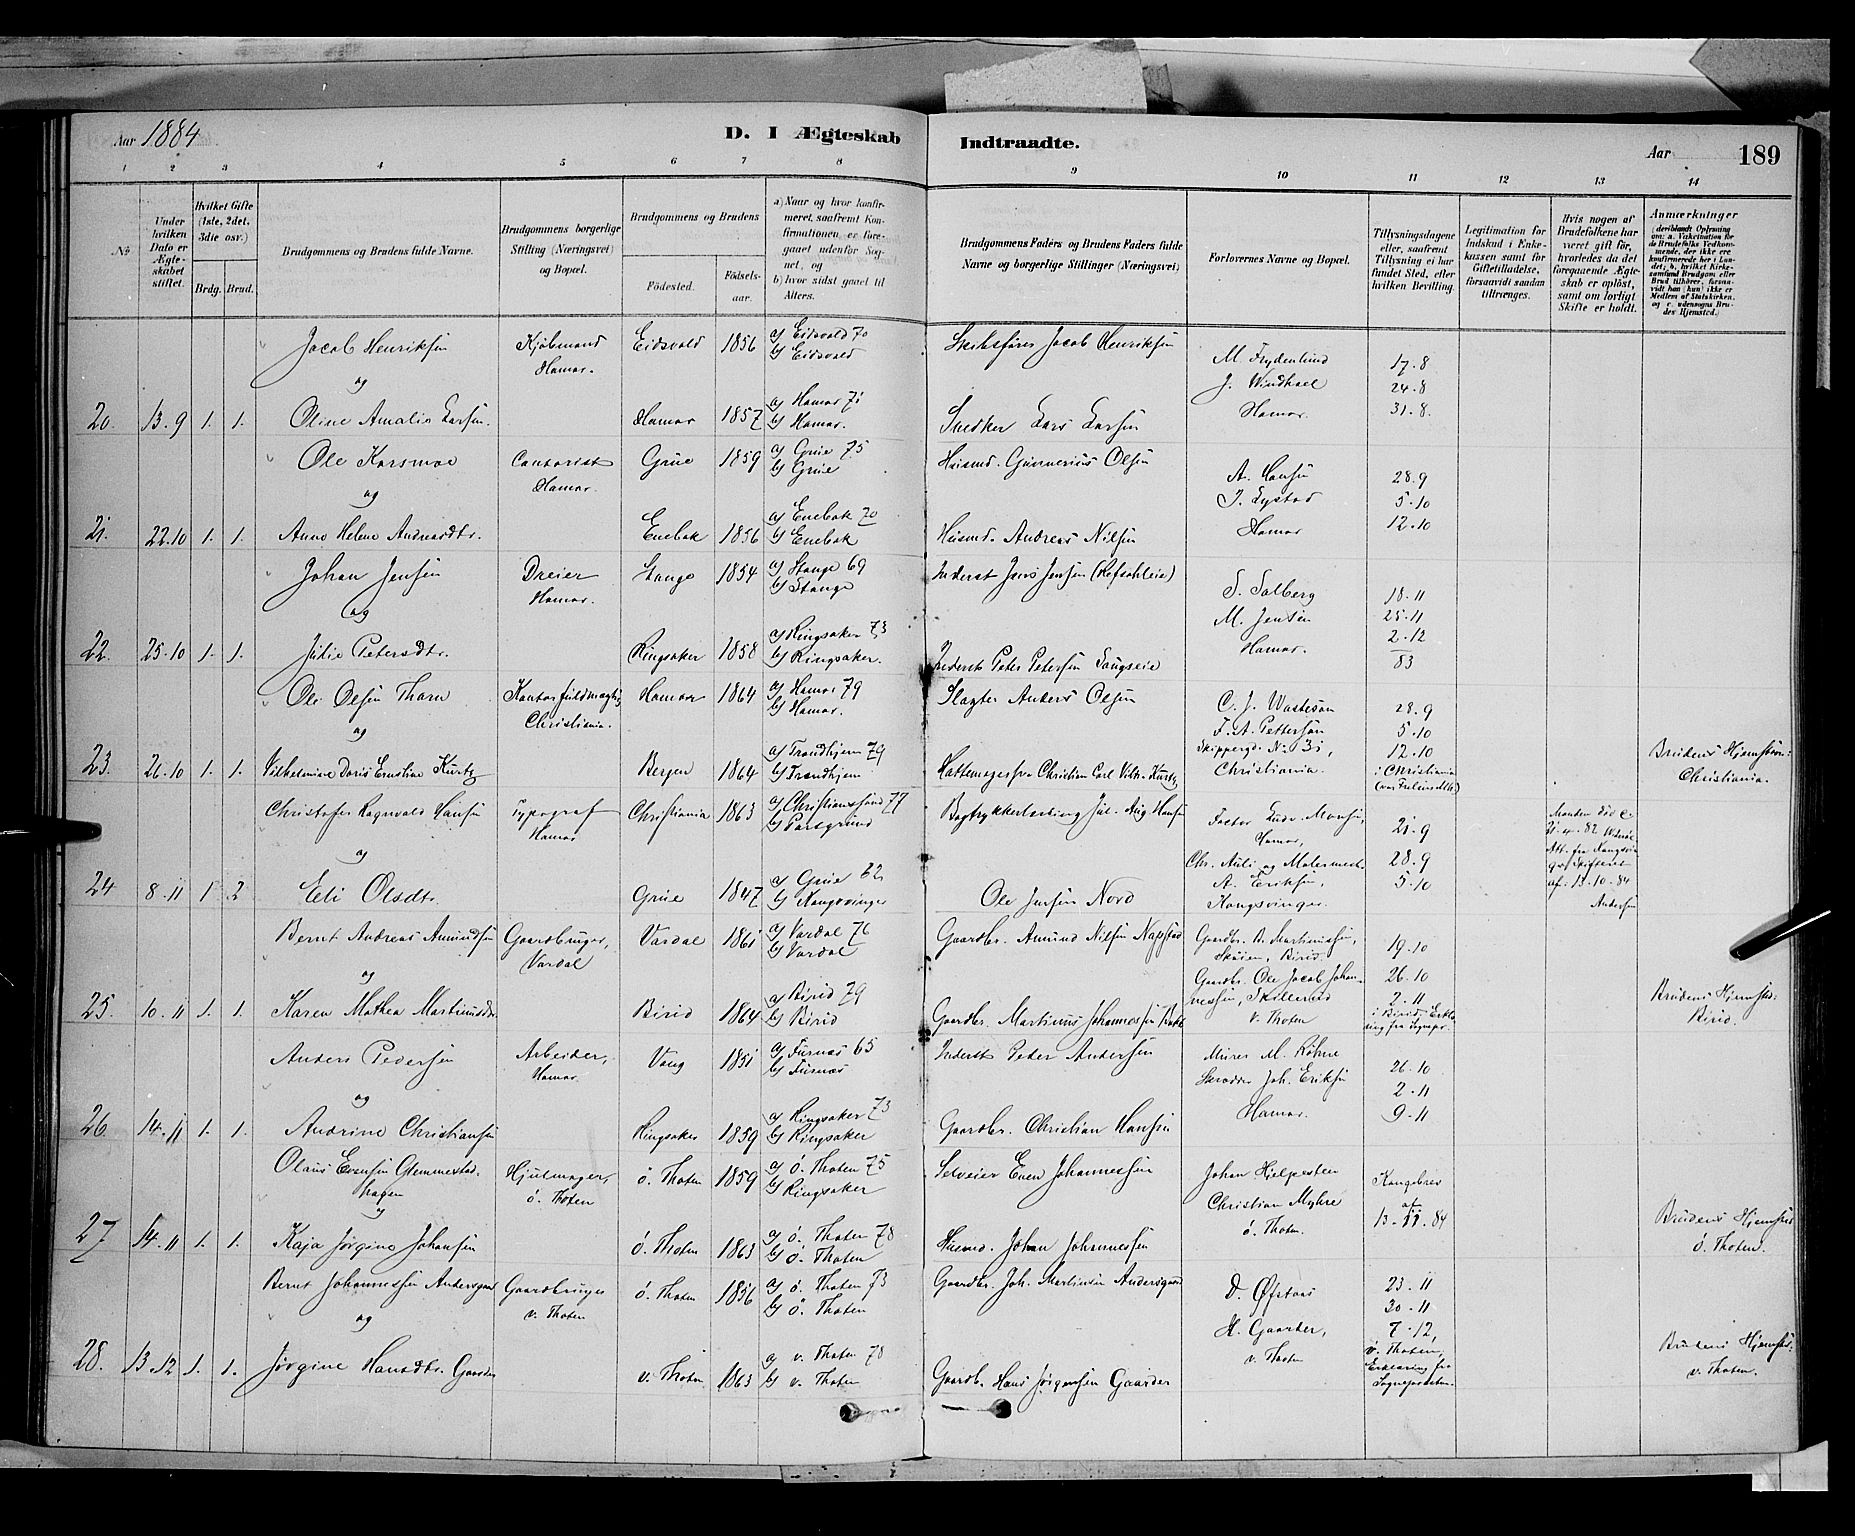 Aar 1884
D. I Ægteskab Indtraadte.
Aar 189
1 2 3 4 5 6 7 8 9 10 11 12 13 14
No
Under hvilken Dato er Ægteskabet stiftet.
Hvilket Gifte (1ste, 2det, 3die osv.)
Brdg. Brud.
Brudgommens og Brudens fulde Navne.
Brudgommens borgerlige Stilling (Næringsvei) og Bopæl.
Brudgommens og Brudens
Fødested. Fødselsaar.
a) Naar og hvor konfirmeret, saafremt Konfirmationen er foregaaet udenfor Sognet, og
b) hvor sidst gaaet til Alters.
Brudgommens Faders og Brudens Faders fulde Navne og borgerlige Stillinger (Næringsvei)
Forlovernes Navne og Bopæl.
Tillysningsdagene eller, saafremt Tillysning ei har fundet Sted, efter hvilken Bevilling.
Legitimation for Indskud i Enkekassen samt for Giftetilladelse, forsaavidt saadan tiltrænges.
Hvis nogen af Brudefolkene har været gift før, hvorledes da det foregaaende Ægteskab er opløst, samt om lovligt Skifte er holdt.
Anmærkninger (deriblandt Oplysning om: a. Vakcination for de Brudefolks Vedkommende, der ikke ere konfirmerede her i Landet; b. hvilket Kirkesamfund Brudgom eller Brud tilhører, forsaavidt han (hun) ikke er Medlem af Statskirken, og c. udensogns Brudes Hjemsted.)
Jacob Henriksen Kjøbmand Hamar. Eidsvold 1856 a) Eidsvold 70 b) Eidsvold Skibsfører Jacob Henriksen M. Frydenlund 17-8
og J. Windhoel 24-8
20. 13-9 1. 1. Oline Amalie Larsen. Hamar 1857 a) Hamar 71 b) Hamar. Snedker Lars Larsen Hamar. 31-8.
Ole Korsmoe Contorist Hamar. Grue 1859 a) Grue 75 b) Grue Husmd. Gunnerius Olsen A. Hansen 28-9
og J. Lystad 5-10
21. 22-10 1. 1. Anne Helene Andreasdtr. Enebak 1856 a) Enebak 70 b) Enebak Husmd. Andreas Nilsen Hamar 12-10
Johan Jensen Dreier Hamar. Stange 1854 a) Stange 69 b) Stange Inderst Jens Jensen S. Solberg 18-11
og M. Jensen 25-11
22. 25-10 1. 1. Julie Petersdtr. Ringsaker 1858 a) Ringsaker 73 b) Ringsaker. Inderst Peter Petersen Hamar. 2-12 83
Ole Olsen Thorn Kontorfuldmægtig, Christiania. Hamar 1864 a) Hamar 79 b) Hamar. Slagter Anders Olsen C. J. Wastesøn 28-9
og F. A. Pettersøn 5-10
23. 26-10 1. 1. Wilhelmine Doris Ernstine Kurtz Bergen 1864 a) Trondhjem 79 b) Trondhjem Hattemager Christian Carl Vilh. Kurtz Skippergd. No 31, Christiania. 12-10 i Christiania Brudens Hjemsted: Christiania.
Christofer Ragnvald Hansen Typograf Hamar Christiania 1863 a) Christianssund 77 b) Porsgrund Bogtrykker Jul. Aug. Hansen Factor Ludv. Monsen, Hamar, 21-9 Manden død 21-4-82
og Chr. Auli og Malermest. 28-9
24 8-11 1 2 Eli Olsdtr. Grue 1847 a) Grue 62 b) Kongsvinger Ole Jensen Nord A. Eriksen, Kongsvinger. 5-10 af 13-10-84 Andersen
Bernt Andreas Amundsen Gaardbruger, Vardal Vardal 1861 a) Vardal 76 b) Vardal Gaardbr. Amund Nilsen Gaardbr. B. Martinussen, Skøien, Birid. 19-10
og Gaardbr. Ole Jacob Johannessen, 26-10
25. 10-11 1. 1. Karen Mathea Martinusdtr. Birid 1864 a) Birid 79 b) Birid Gaardbr. Martinus Johannessen v. Thoten 2-11 i Birid. Brudens Hjemsted: Birid.
Anders Pedersen Arbeider, Hamar. Vang 1851 a) Furnæs 65 b) Furnæs Inderst Peder Andersen Murer M. Röhne 26-10
og Skrædder Joh. Eriksen 2-11
26 14-11 1. 1. Andrine Christiansen Ringsaker 1859 a) Ringsaker 73 b) Ringsaker Gaardbr. Christian Hansen Hamar. 9-11
Olaus Evensen Glemmestadhagen Hjulmager, ö. Thoten ö. Thoten 1859 a) ö. Thoten 75 b) Ringsaker Selveier Even Johannessen Johan Hjelpesten Kongebrev
og Christian Myhre af
27 14-11 1. 1. Kaja Jørgine Johansen ö. Thoten 1863 a) ö. Thoten 78 b) ö. Thoten Husmd. Johan Johannessen ö. Thoten. 13-11-84 Brudens Hjemsted ö. Thoten.
Bernt Johannessen Andersgaard Gaardbruger v. Thoten ö. Thoten 1856 a) ö. Thoten 73 b) ö. Thoten Gaardbr. Joh. Martinsen Andersgaard D. Øfstaas 23-11
og H. Gaarder, 30-11
28. 13-12 1. 1. Jørgine Hansdtr. Gaarder v. Thoten 1863 a) v. Thoten 78 b) v. Thoten Gaardb. Hans Jørgensen Gaarder v. Thoten 7-12, v. Thoten, Erklæring fra Sognepresten. Brudens Hjemsted: v. Thoten.